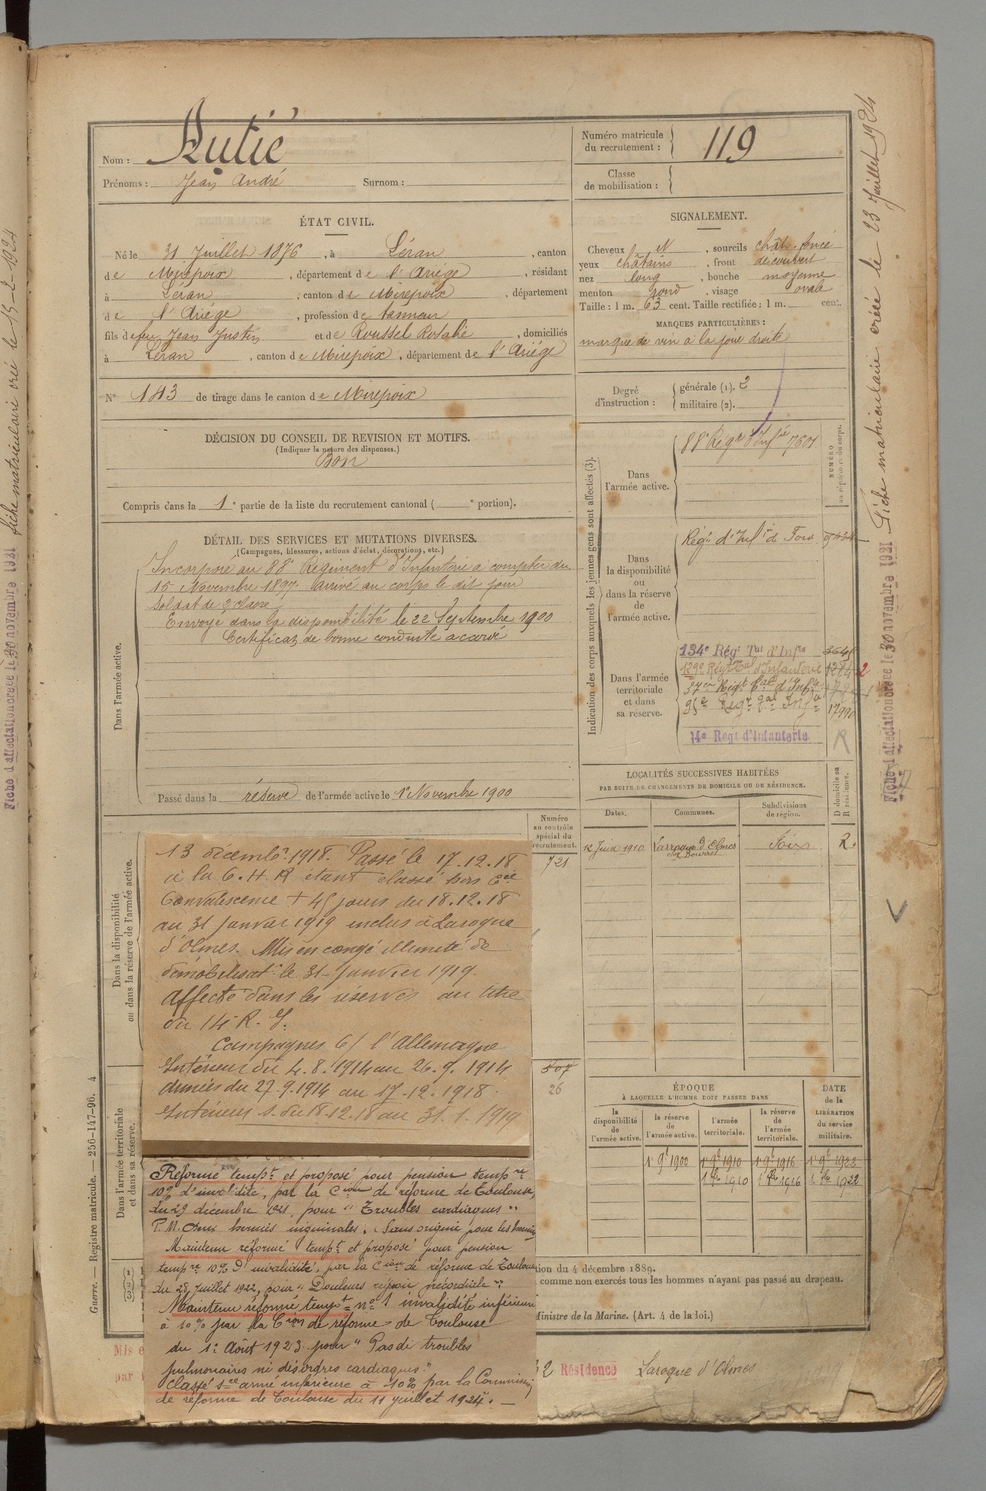 Nom : Autié
Prénoms : Jean André Surnom :
ÉTAT CIVIL.
Né le 31 Juillet 1876, à Léran, canton
de Mirepoix, département de l'Ariège, résidant
à Léran, canton de Mirepoix, département
de l'Ariège, profession de tanneur
fils de feu Jean Justin et de Roussel Rosalie, domiciliés
à Léran, canton de Mirepoix, département de l'Ariège
N° 143 de tirage dans le canton de Mirepoix
DÉCISION DU CONSEIL DE REVISION ET MOTIFS.
(Indiquer la nature des dispenses.)
Bon
Compris dans la 1e partie de la liste du recrutement cantonal ( e portion).
DÉTAIL DES SERVICES ET MUTATIONS DIVERSES.
(Campagnes, blessures, actions d'éclat, décorations, etc.)
Dans l'armée active.
Incorporé au 88e Régiment d'Infanterie à compter du
15 Novembre 1897. Arrivé au corps le dit jour
Soldat de 2e classe
Envoyé dans la disponibilité le 22 Septembre 1900
Certificat de bonne conduite accordé
Passé dans la réserve de l'armée active le 1er Novembre 1900
Numéro
au contrôle
spécial du
recrutement.
721
507
26
Dans la disponibilité
ou dans la réserve de l'armée active.
13 décembre 1918. Passé le 17.12.18
à la C.H.R étant classé hors Cie
Convalescence + 45 jours du 18.12.18
au 31 Janvier 1919 inclus à Laroque
d'Olmes. Mis en congé illimité de
démobilisat° le 31 Janvier 1919.
Affecté dans les réserves au titre
du 14 R.I.
Campagnes C/ l'Allemagne
Intérieur du 4.8.1914 au 26.9.1914
Armées du 27.9.1914 au 17.12.1918.
Intérieur du 18.12.18 au 31.1.1919
Dans l'armée territoriale
et dans sa réserve.
Réformé tempre et proposé pour pension tempre
10% d'invalidité, par la Cion de réforme de Toulouse,
du 29 décembre 1921, pour "Troubles cardiaques"
P.M. Deux hernies inguinales.
Maintenu réformé tempt et proposé pour pension
tempre 10% d'invalidité, par la Cion de réforme de Toulouse
du 28 Juillet 1922, pour "Douleurs région précordiale"
Maintenu réformé tempre n° 1 invalidité inférieure
à 10% par la Cion de réforme de Toulouse
du 1er Août 1923 pour "Pas de troubles
pulmonaires ni désordres cardiaques"
Classé sce armé inférieure à 10% par la Commission
de réforme de Toulouse du 11 juillet 1924. —
Numéro matricule
du recrutement : 119
Classe
de mobilisation :
SIGNALEMENT.
Cheveux N, sourcils chât. foncé
yeux châtains, front découvert
nez long, bouche moyenne
menton rond, visage ovale
Taille : 1 m. 63 cent. Taille rectifiée : 1 m. cent.
MARQUES PARTICULIÈRES :
marque de vin à la joue droite
Degré
d'instruction :
générale (1). 2
militaire (2).
Indication des corps auxquels les jeunes gens sont affectés (3).
NUMÉRO
Dans
l'armée active.
88e Régt d'Infrie 7601
Dans
la disponibilité
ou
dans la réserve
de
l'armée active.
Régt d'Infie de Foix
Dans l'armée
territoriale
et dans
sa réserve.
134e Régt Tal d'Infie
129e Régt Tal d'Infanterie
37me Régt Tal d'Infie
95e Régt Tal Infie 17990
14e Régt d'Infanterie
R
LOCALITÉS SUCCESSIVES HABITÉES
PAR SUITE DE CHANGEMENTS DE DOMICILE OU DE RÉSIDENCE.
Dates.
Communes.
Subdivisions
de région.
D domicile ou
R résidence.
12 Juin 1910 Larroque d'Olmes Foix R.
ÉPOQUE
À LAQUELLE L'HOMME DOIT PASSER DANS
la
disponibilité
de
l'armée active.
la réserve
de
l'armée active.
l'armée
territoriale.
la réserve
de
l'armée
territoriale.
DATE
de la
LIBÉRATION
du service
militaire.
1er 9bre 1900 1er 9bre 1910 1er 9bre 1916 1er 9bre 1922
1er 8bre 1910 1er 8bre 1916 1er 8bre 1922
tion du 4 décembre 1889.
comme non exercés tous les hommes n'ayant pas passé au drapeau.
Ministre de la Marine. (Art. 4 de la loi.)
Mis e
par
2 Résidence Laroque d'Olmes
Guerre. — Registre matricule. — 256-147-96. 4
Fiche d'affectation créée le 30 novembre 1921
fiche matriculaire créée le 15-2-1924
Fiche d'affectation créée le 30 novembre 1921
Fiche matriculaire créée le 23 Juillet 1924